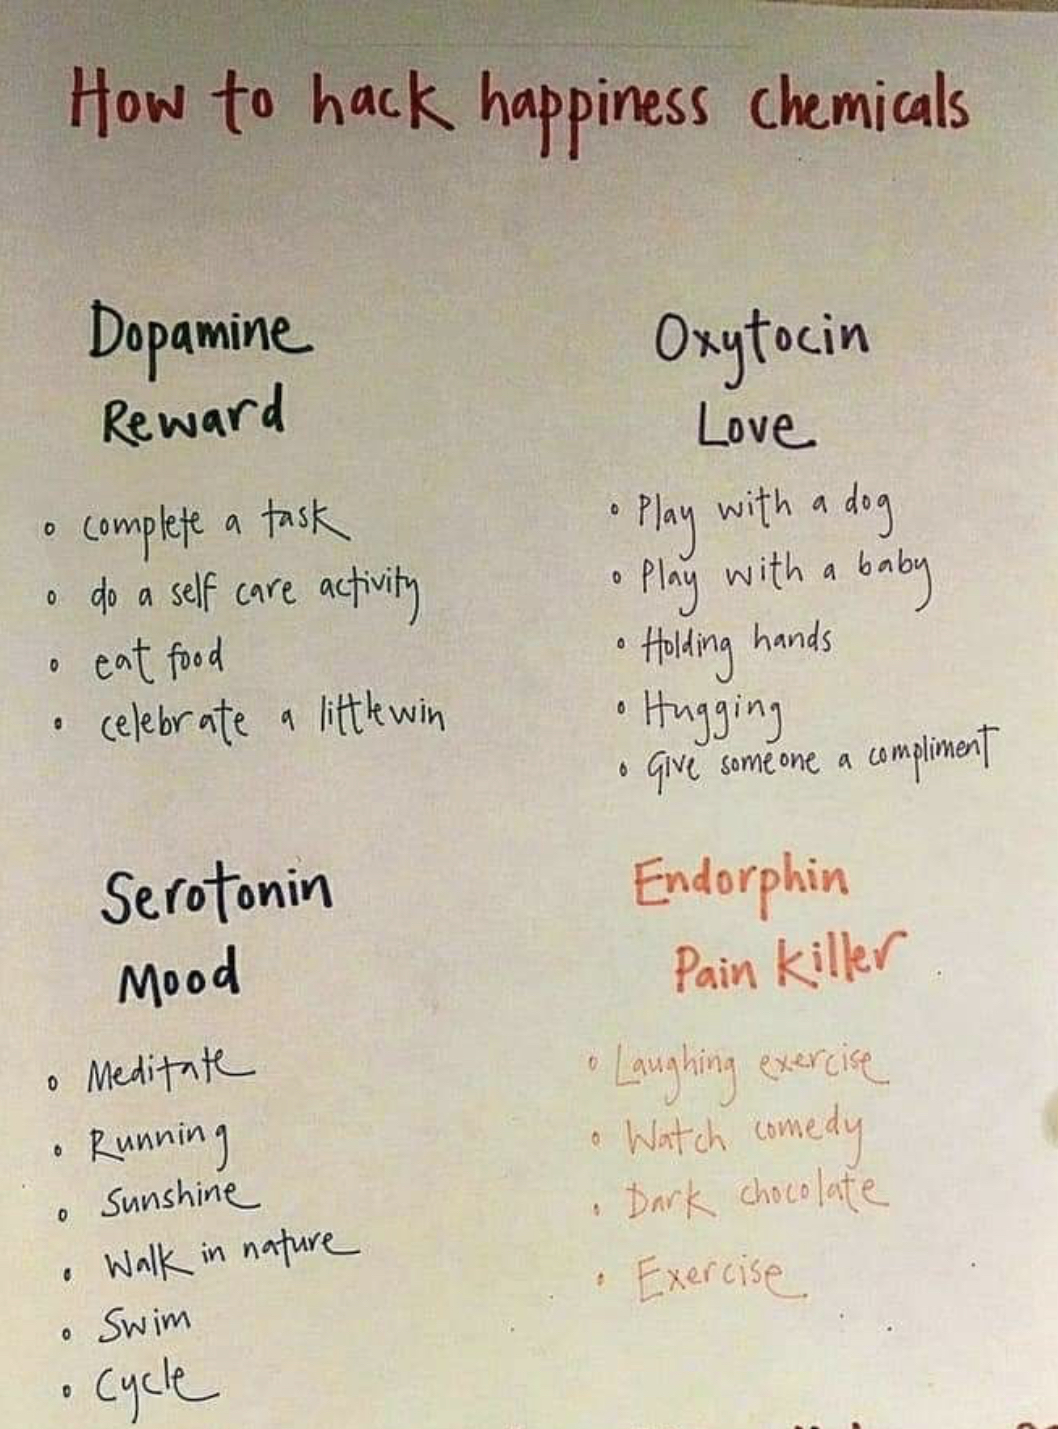 How to hack happiness chemicals
Dopamine
Reward
complete a task
do a self care activity
eat food
celebrate a little win
Oxytocin
Love
Play with a dog
Play with a baby
Holding hands
Hugging
Give someone a compliment
Serotonin
Mood
Meditate
Running
Sunshine
Walk in nature
Swim
Cycle
Endorphin
Pain Killer
Laughing exercise
Watch comedy
Dark chocolate
Exercise